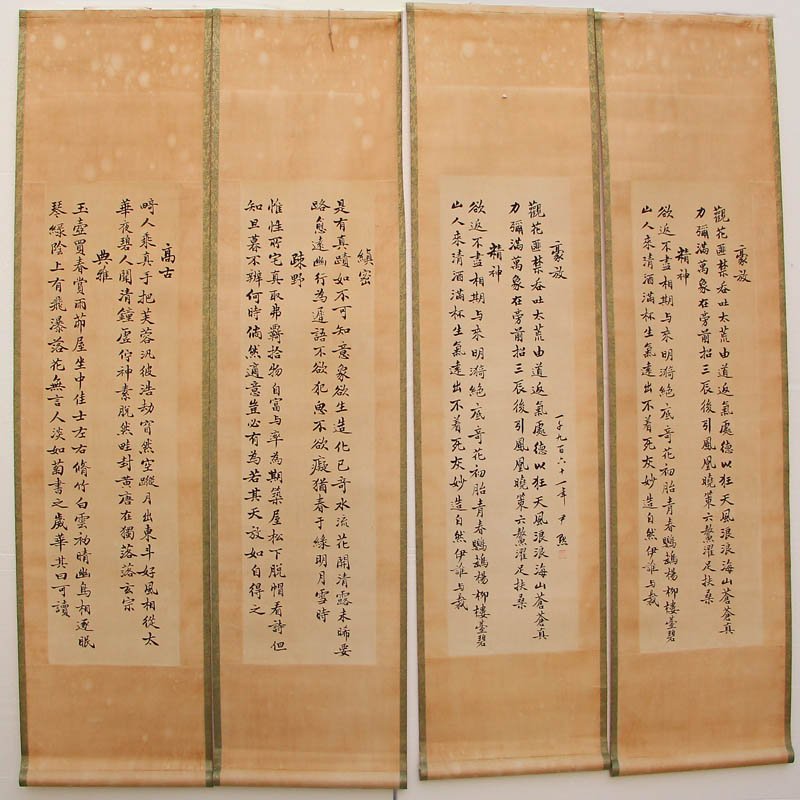 豪放
觀花匪禁吞吐大荒由道返氣處德以狂天風浪浪海山蒼蒼真
力彌滿萬象在旁前招三辰後引鳳凰曉策六鰲濯足扶桑
精神
欲返不盡相期与來明漪絕底奇花初胎青春鸚鵡楊柳樓臺碧
山人來清酒滿杯生氣遠出不着死灰妙造自然伊誰与裁
豪放
觀花匪禁吞吐大荒由道返氣處德以狂天風浪浪海山蒼蒼真
力彌滿萬象在旁前招三辰後引鳳凰曉策六鰲濯足扶桑
精神
欲返不盡相期与來明漪絕底奇花初胎青春鸚鵡楊柳樓臺碧
山人來清酒滿杯生氣遠出不着死灰妙造自然伊誰与裁
一千九百六十一年 尹熙
縝密
是有真蹟如不可知意象欲生造化已奇水流花開清露未晞要
路愈遠幽行為遲語不欲犯思不欲癡猶春于綠明月雪時
疎野
惟性所宅真取弗羈拾物自富与率為期築屋松下脫帽看詩但
知旦暮不辨何時倘然適意豈必有為若其天放如自得之
高古
畸人乘真手把芙蓉汎彼浩劫窅然空蹤月出東斗好風相從太
華夜碧人聞清鐘虛佇神素脫然畦封黃唐在獨落落玄宗
典雅
玉壺買春賞雨茆屋坐中佳士左右脩竹白雲初晴幽鳥相逐眠
琴綠陰上有飛瀑落花無言人淡如菊書之歲華其曰可讀